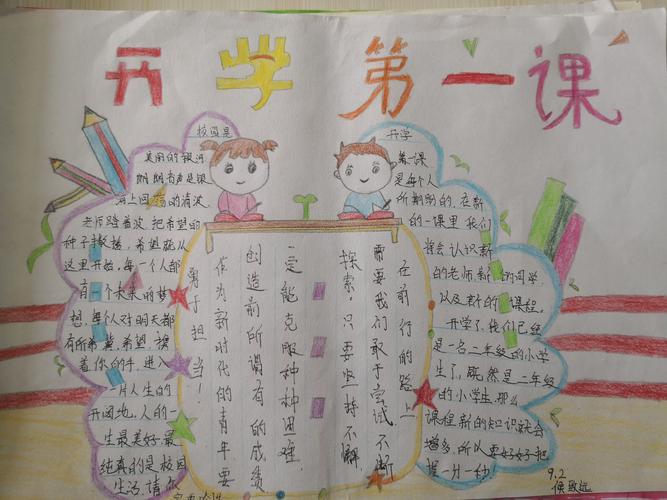 开学第一课
校园是
美丽的银河
朗朗书声是银
河上回荡的清波
老师踏着波,把希望的
种子播撒,希望就从
这里开始,每一个人都
有一个未来的梦
想,每个人对明天都
有所希冀,希望携
着你的手,进入
一片人生的
开阔地,人的一
生最美好最
纯真的是校园
生活,请你
在前行的路上
需要我们敢于尝试不断
探索,只要坚持不懈
一定能克服种种困难,
创造前所谓有的成绩
作为新时代的青年要
勇于担当!
开学
第一课
是每个人
所期盼的,在新
的一课里我们
将会认识新
的老师,新的同学,
以及新的课程。
开学了,我们已经
是一名二年级的小学
生了,既然是二年级
的小学生,那么
课程新的知识就会
增多,所以要好好把
握一分一秒!
9.2
侯致远